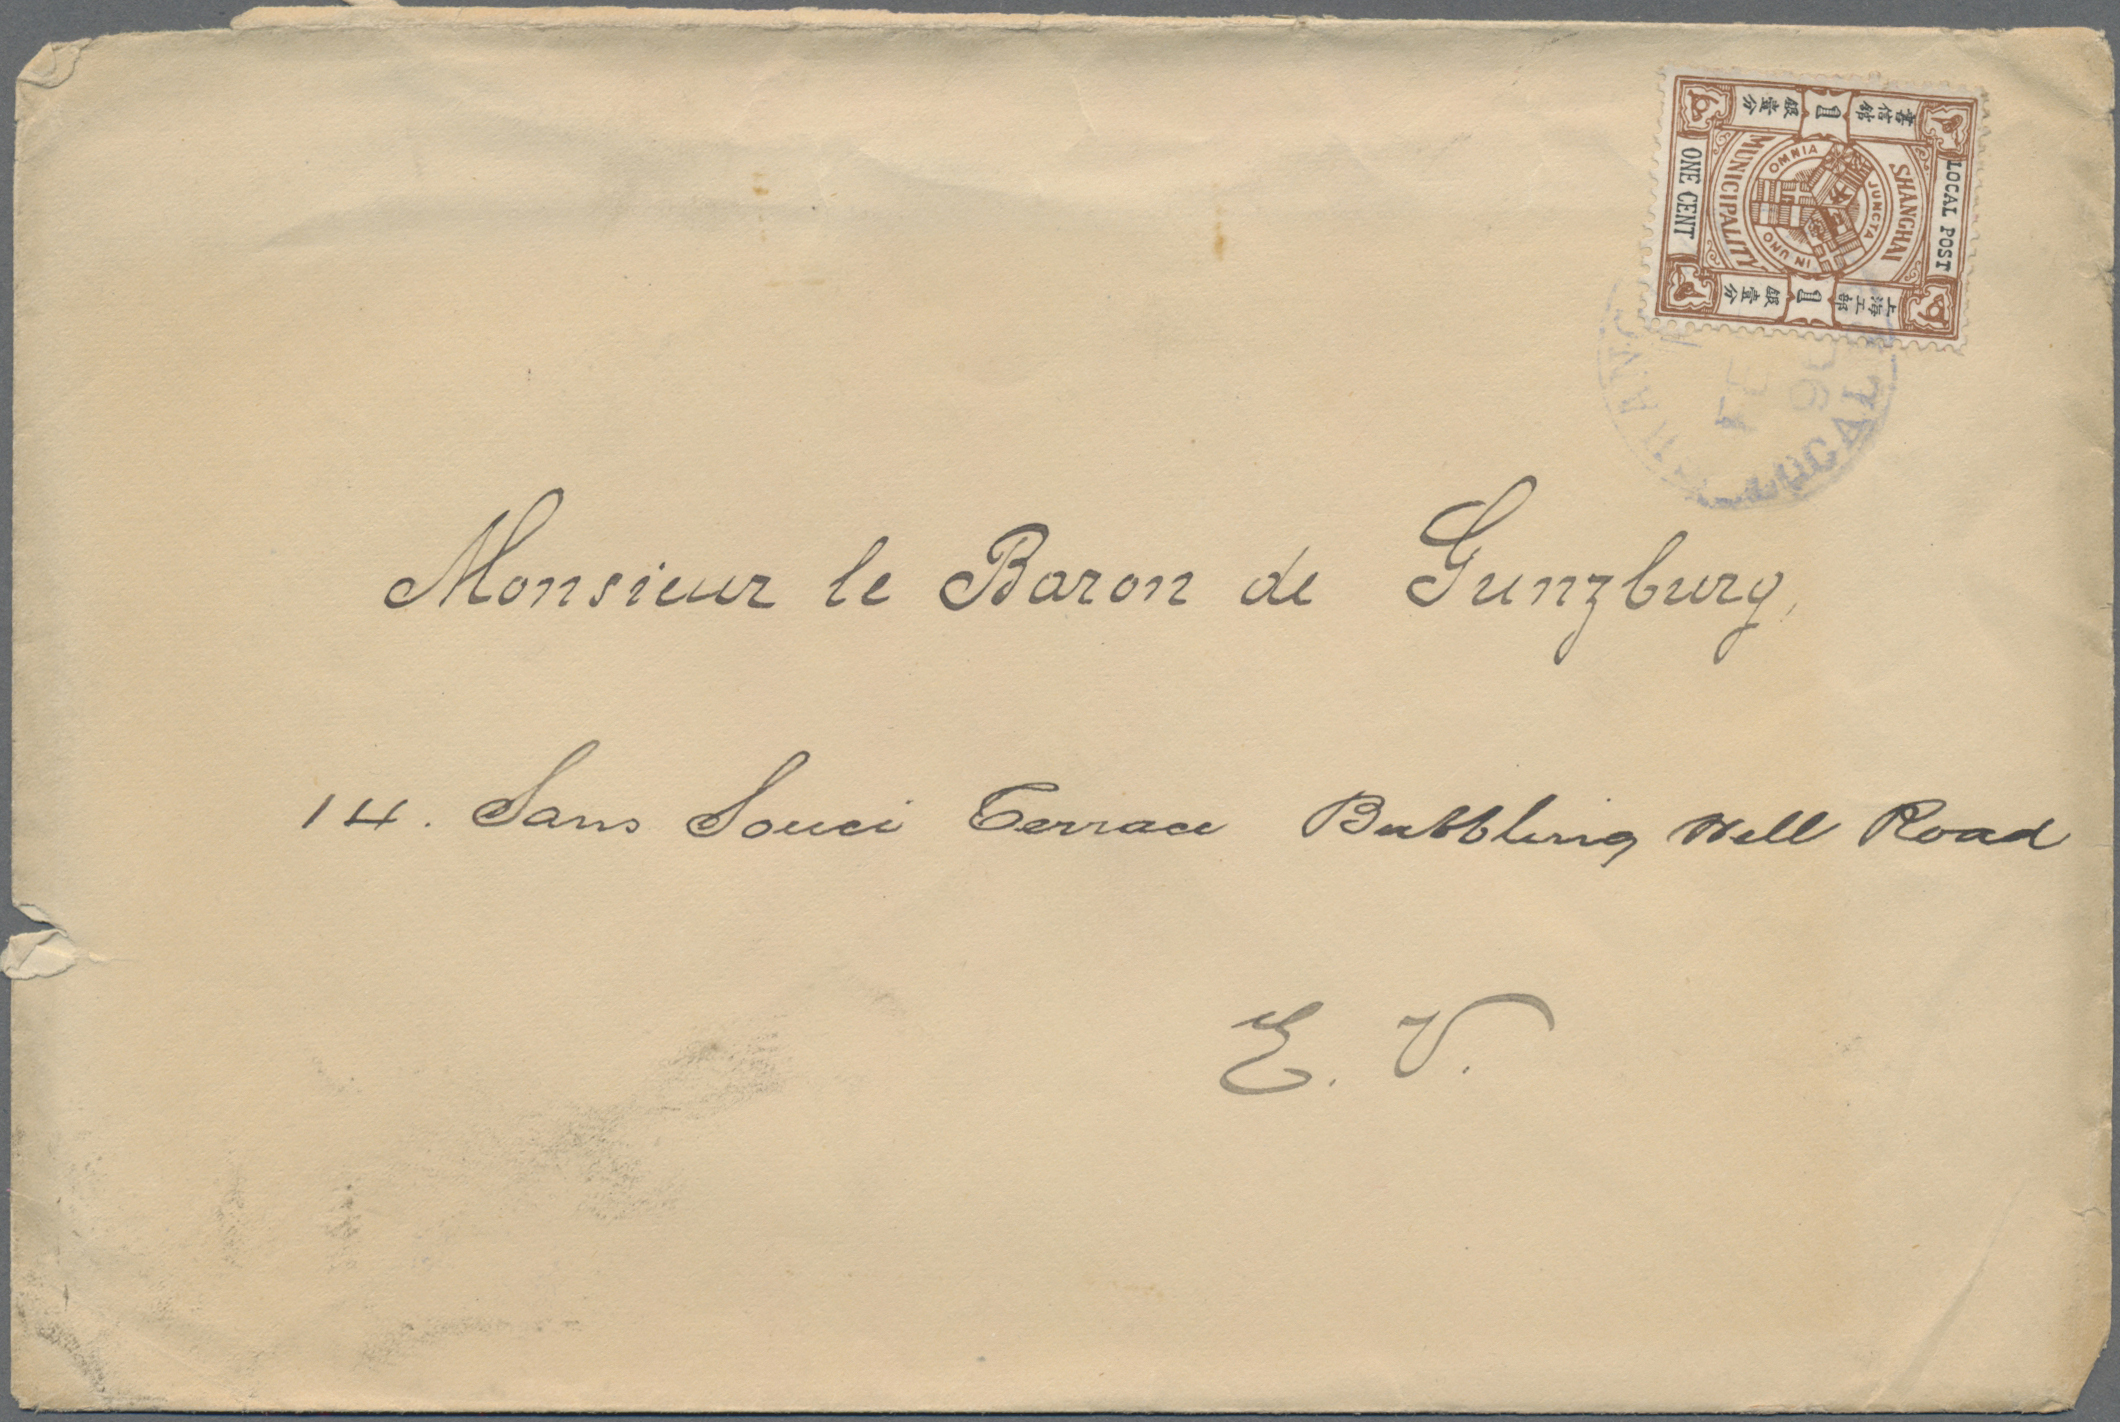 LOCAL POST
SHANGHAI
MUNICIPALITY
ONE CENT
OMNIA JUNCTA IN UNO
書信館
1
銀壹分
上海工部
1
銀壹分
LOCAL
Monsieur le Baron de Gunzburg,
14. Sans Souci Terrace Bubbling Well Road
E. V.